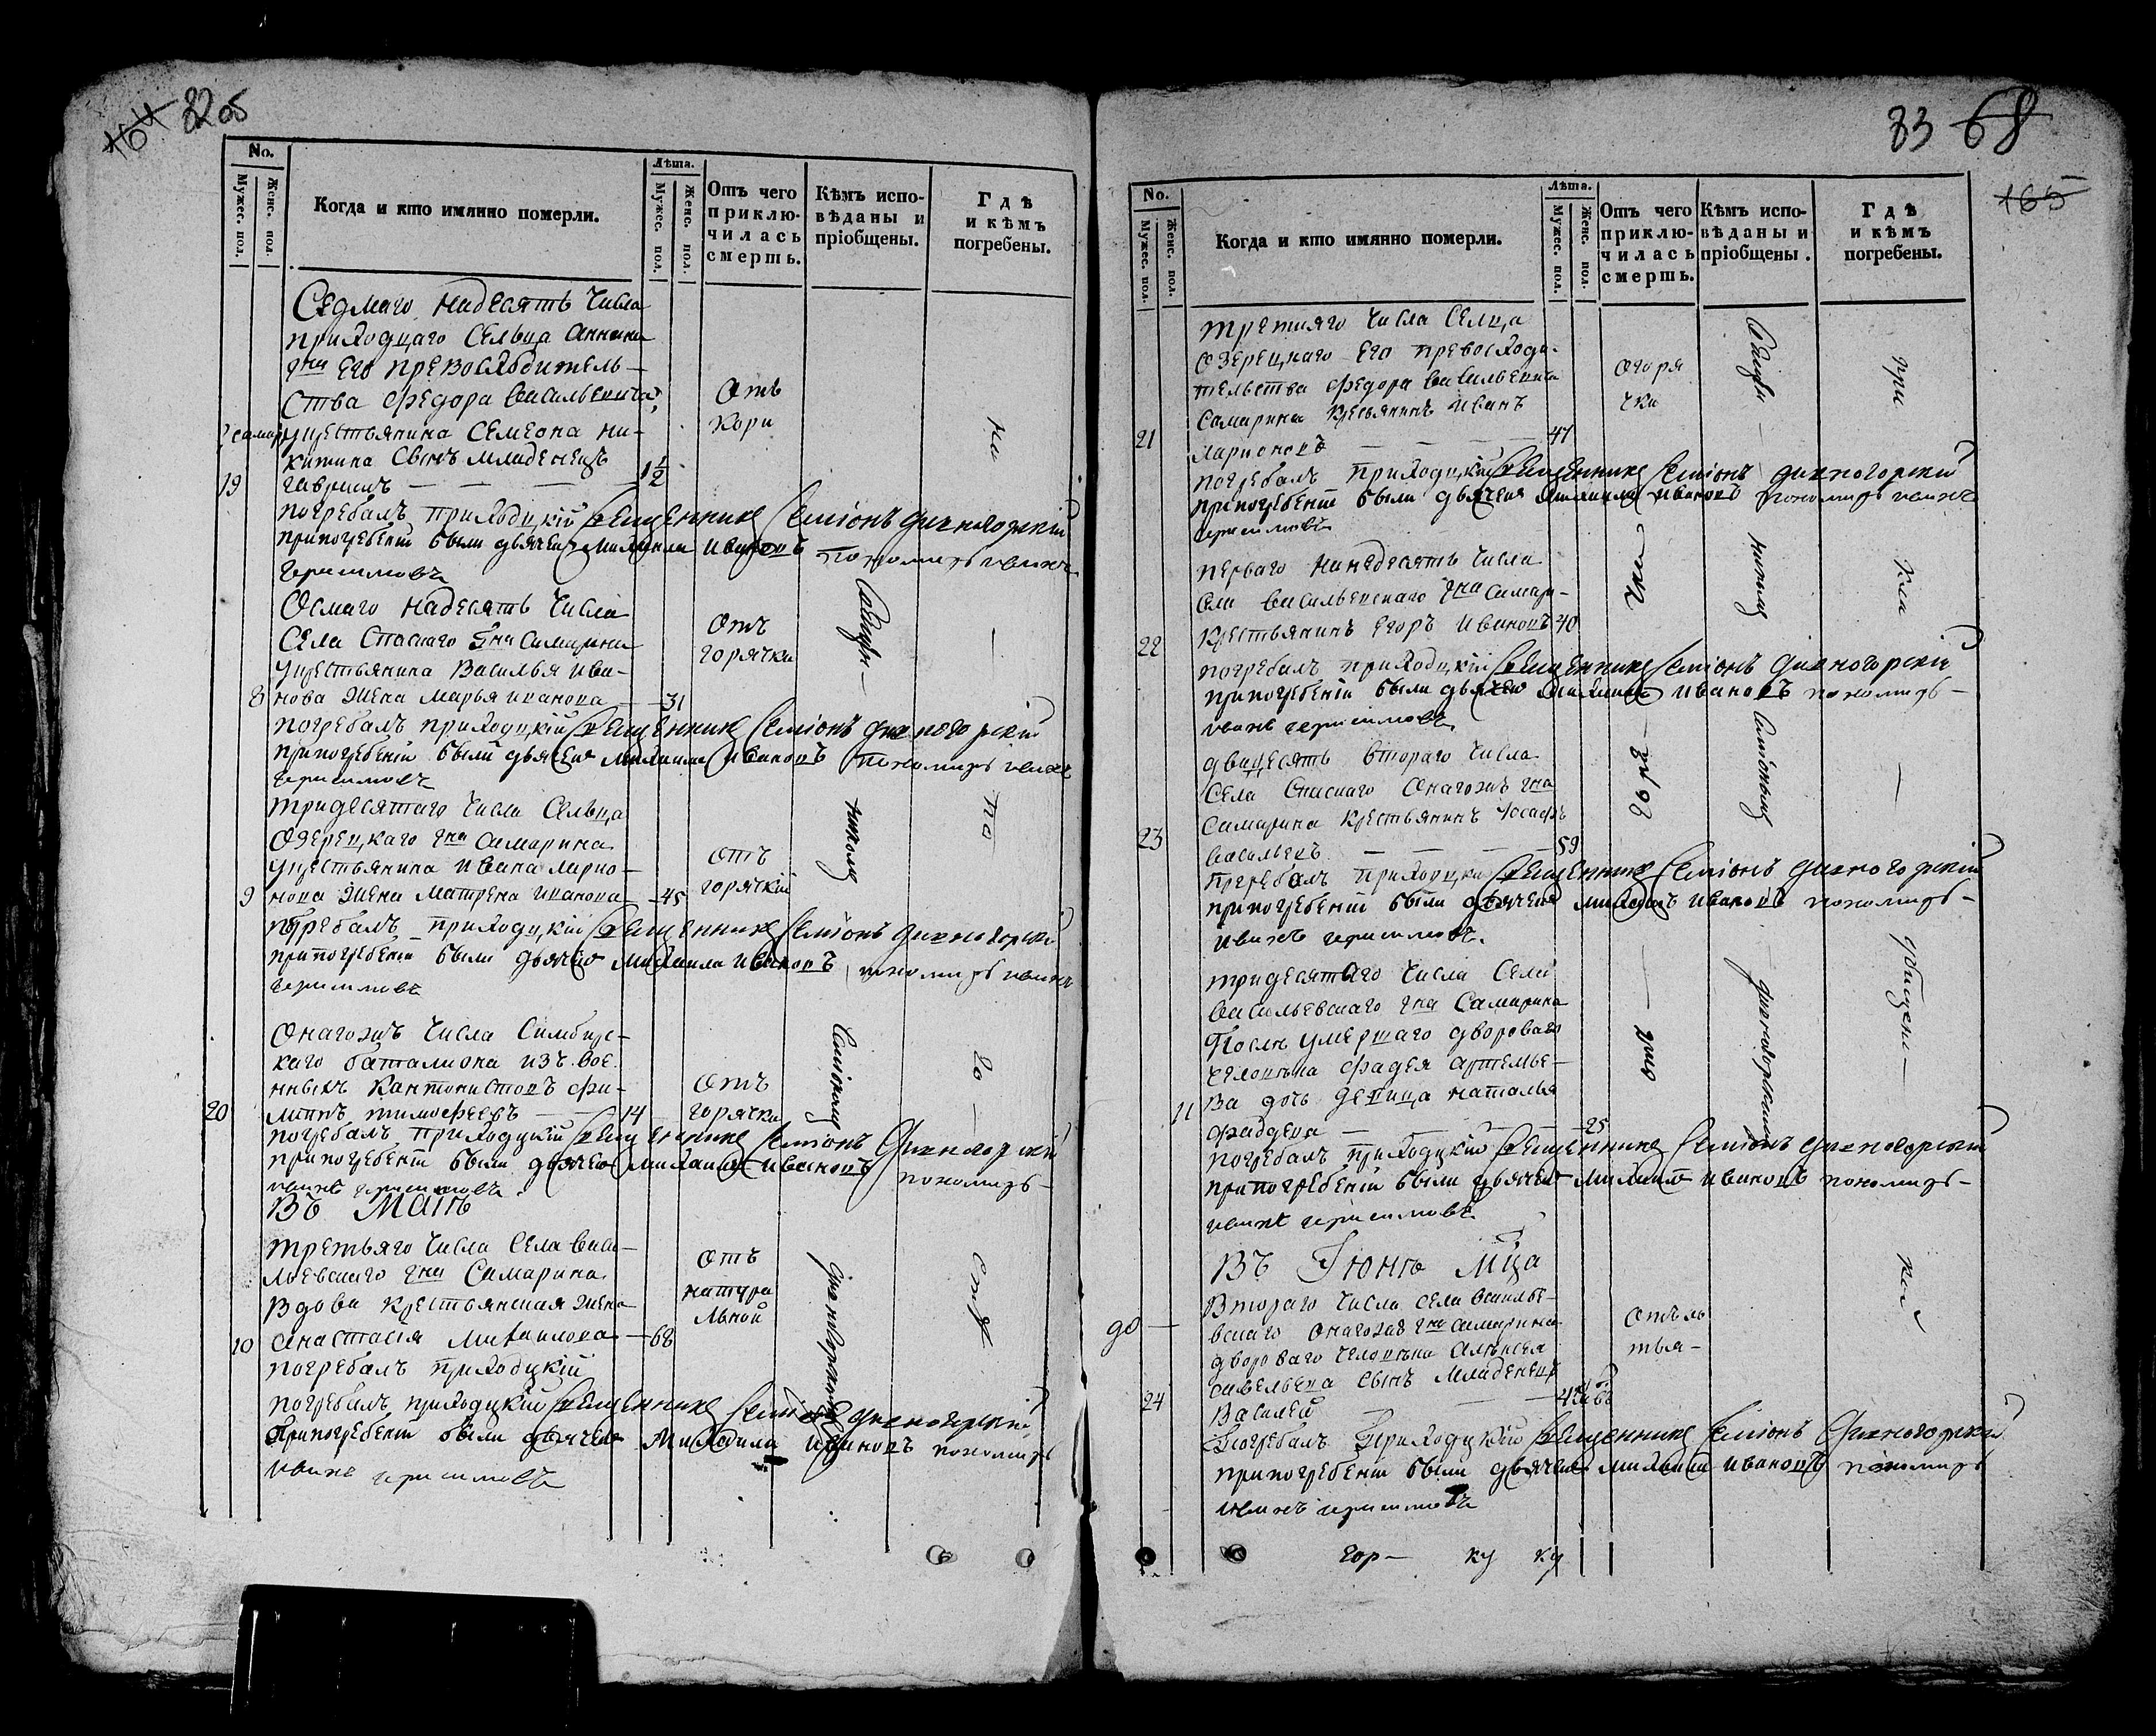 164 82 об
No.
Мужес. пол.
Женс. пол.
Когда и кто имянно померли.
Лѣта.
Мужес. пол.
Женс. пол.
Отъ чего приклю-
чилась смерть.
Кѣмъ испо-
вѣданы и
пріобщены.
Гдѣ
и кѣмъ
погребены.
Седмаго надесять числа
приходцаго сельца
гна его превосходитель-
ства Федора Васильевича
крестьянина Семеона Ни-
китина сынъ младенецъ
19 Гаврилъ — — — 1 1/2
Отъ
кори
погребалъ приходцкій священникъ Семіонъ Дивногорскій
припогребеніи были дьячекъ Михаила Ивановъ пономарь Иванъ
Герасимовъ
Осмаго надесять числа
села Спаскаго гна Самарина
крестьянина Василья Ива-
8 нова жена Марья Иванова — 31
Отъ
горячки
погребалъ приходцкій священникъ Семіонъ Дивногорскій
припогребеніи были дьячекъ Михаила Ивановъ пономарь Иванъ
Герасимовъ
тридесятаго числа сельца
Озерецкаго гна Самарина
крестьянина Ивана Ларио-
9 нова жена Матрена Иванова — 45
отъ
горячки
погребалъ приходцкій священникъ Семіонъ Дивногорскій
припогребеніи были дьячекъ Михаила Ивановъ пономарь Иванъ
Герасимовъ
Онагожъ числа Симбирс-
каго баталиона изъ вое-
нныхъ кантонистовъ Фи-
20 липпъ Тимофеевъ — 14
Отъ
горячки
погребалъ приходцкій священникъ Семіонъ Дивногорскій
припогребеніи были дьячекъ Михаила Ивановъ пономарь
Иванъ Герасимовъ
Въ Маиѣ
третьяго числа села Васи-
льевскаго гна Самарина
вдова крестьянская жена
10 Анастасія Михаилова — 68
Отъ
натура
льной
погребалъ приходцкій
погребалъ приходцкій священникъ Семіонъ Дивногорскій
припогребеніи были дьячекъ Михаила Ивановъ пономарь
Иванъ Герасимовъ
Священ-
никомъ
Семіономъ
Дивногорскимъ
на
—
по
го
—
83 68
165
No.
Мужес. пол.
Женс. пол.
Когда и кто имянно померли.
Лѣта.
Мужес. пол.
Женс. пол.
Отъ чего приклю-
чилась смерть.
Кѣмъ испо-
вѣданы и
пріобщены.
Гдѣ
и кѣмъ
погребены.
третияго числа селца
Озерецкаго его превосходи-
тельства Федора Васильевича
Самарина крестьянинъ Иванъ
21 Ларионовъ — — — 47
Огоря
чки
погребалъ приходцкій священникъ Семіонъ Дивногорскій
припогребеніи были дьячекъ Михаила Ивановъ пономарь Иванъ
Герасимовъ
перваго нанадесять числа
села Васильевскаго гна Самари-
22 крестьянинъ Егоръ Ивановъ 40
погребалъ приходцкій священникъ Семіонъ Дивногорскій
припогребеніи были дьячекъ Михаила Ивановъ пономарь —
Иванъ Герасимовъ
двадесять втораго числа
села Спаскаго онагожъ гна
Самарина крестьянинъ Иосафъ
23 Васильевъ — — — 59
погребалъ приходцкій священникъ Семіонъ Дивногорскій
припогребеніи были дьячекъ Михаилъ Ивановъ пономарь —
Иванъ Герасимовъ.
тридесятаго числа села
Васильевскаго гна Самарина
После умершаго дворового
человѣка Фадея Артемье-
11 ва дочь девица Наталья
Фаддева — — — 25
погребалъ приходцкій священникъ Семіонъ Дивногорскій
припогребеніи были дьячекъ Михаила Ивановъ пономарь —
Иванъ Герасимовъ
Въ Іюнѣ мца
Втораго числа села Василье-
вскаго онагожъ гна Самарина
двороваго человѣка Алексея
Савельева сынъ младенецъ
24 Василей — — 4
до —
погребалъ приходцкій священникъ Семіонъ Дивногорскій
припогребеніи были дьячекъ Михаила Ивановъ пономарь
Иванъ Герасимовъ
Священ-
никомъ
Семіономъ
Дивногорскимъ
при
кла
—
дбищени —